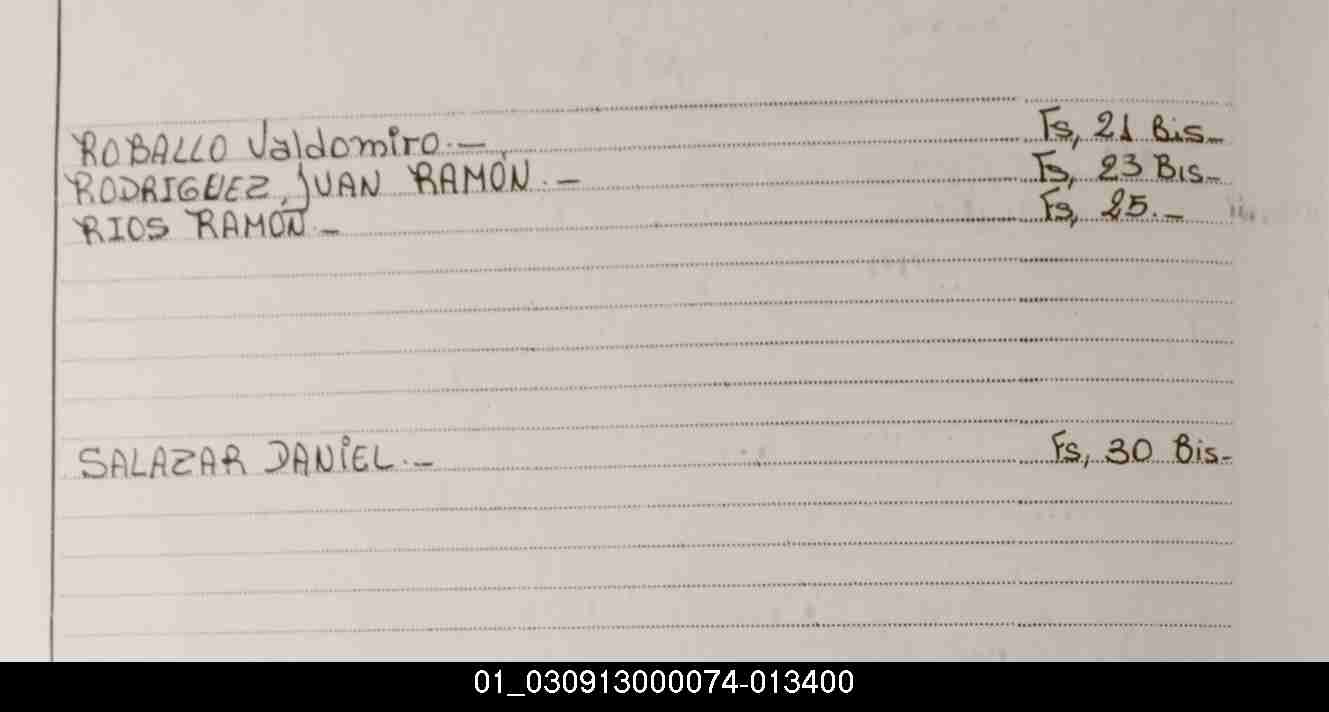 ROBALLO Valdomiro.— Fs, 21 Bis—
RODRIGUEZ, JUAN RAMÓN.— Fs, 23 BIS—
RIOS RAMÓN.— Fs, 25.—
SALAZAR DANiEL.— Fs, 30 Bis-
01_030913000074-013400